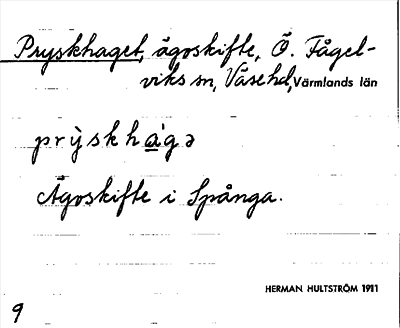 Pryskhaget, ägoskifte, Ö. Fågel-
viks sn, Väse hd, Värmlands län
prỳskhàgə
Ägoskifte i Spånga.
HERMAN HULTSTRÖM 1911
9